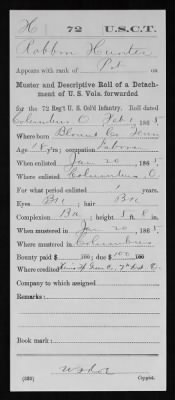 H 72 U.S.C.T.
Robbon Hunter
Appears with rank of Pvt on
Muster and Descriptive Roll of a Detach-
ment of U. S. Vols. forwarded
for the 72 Reg't U. S. Col'd Infantry. Roll dated
Columbus O Feb 1, 1865.
Where born Blount Co. Tenn
Age 18 y'rs; occupation
When enlisted Jan 20, 1865.
Where enlisted Columbus, O
For what period enlisted 1 years.
Eyes ; hair
Complexion ; height 5 ft. 8 in.
When mustered in Jan 20, 1865.
Where mustered in Columbus
Bounty paid $ 100; due $ 100
Where credited
Company to which assigned
Remarks:
Book mark:
Copyist.